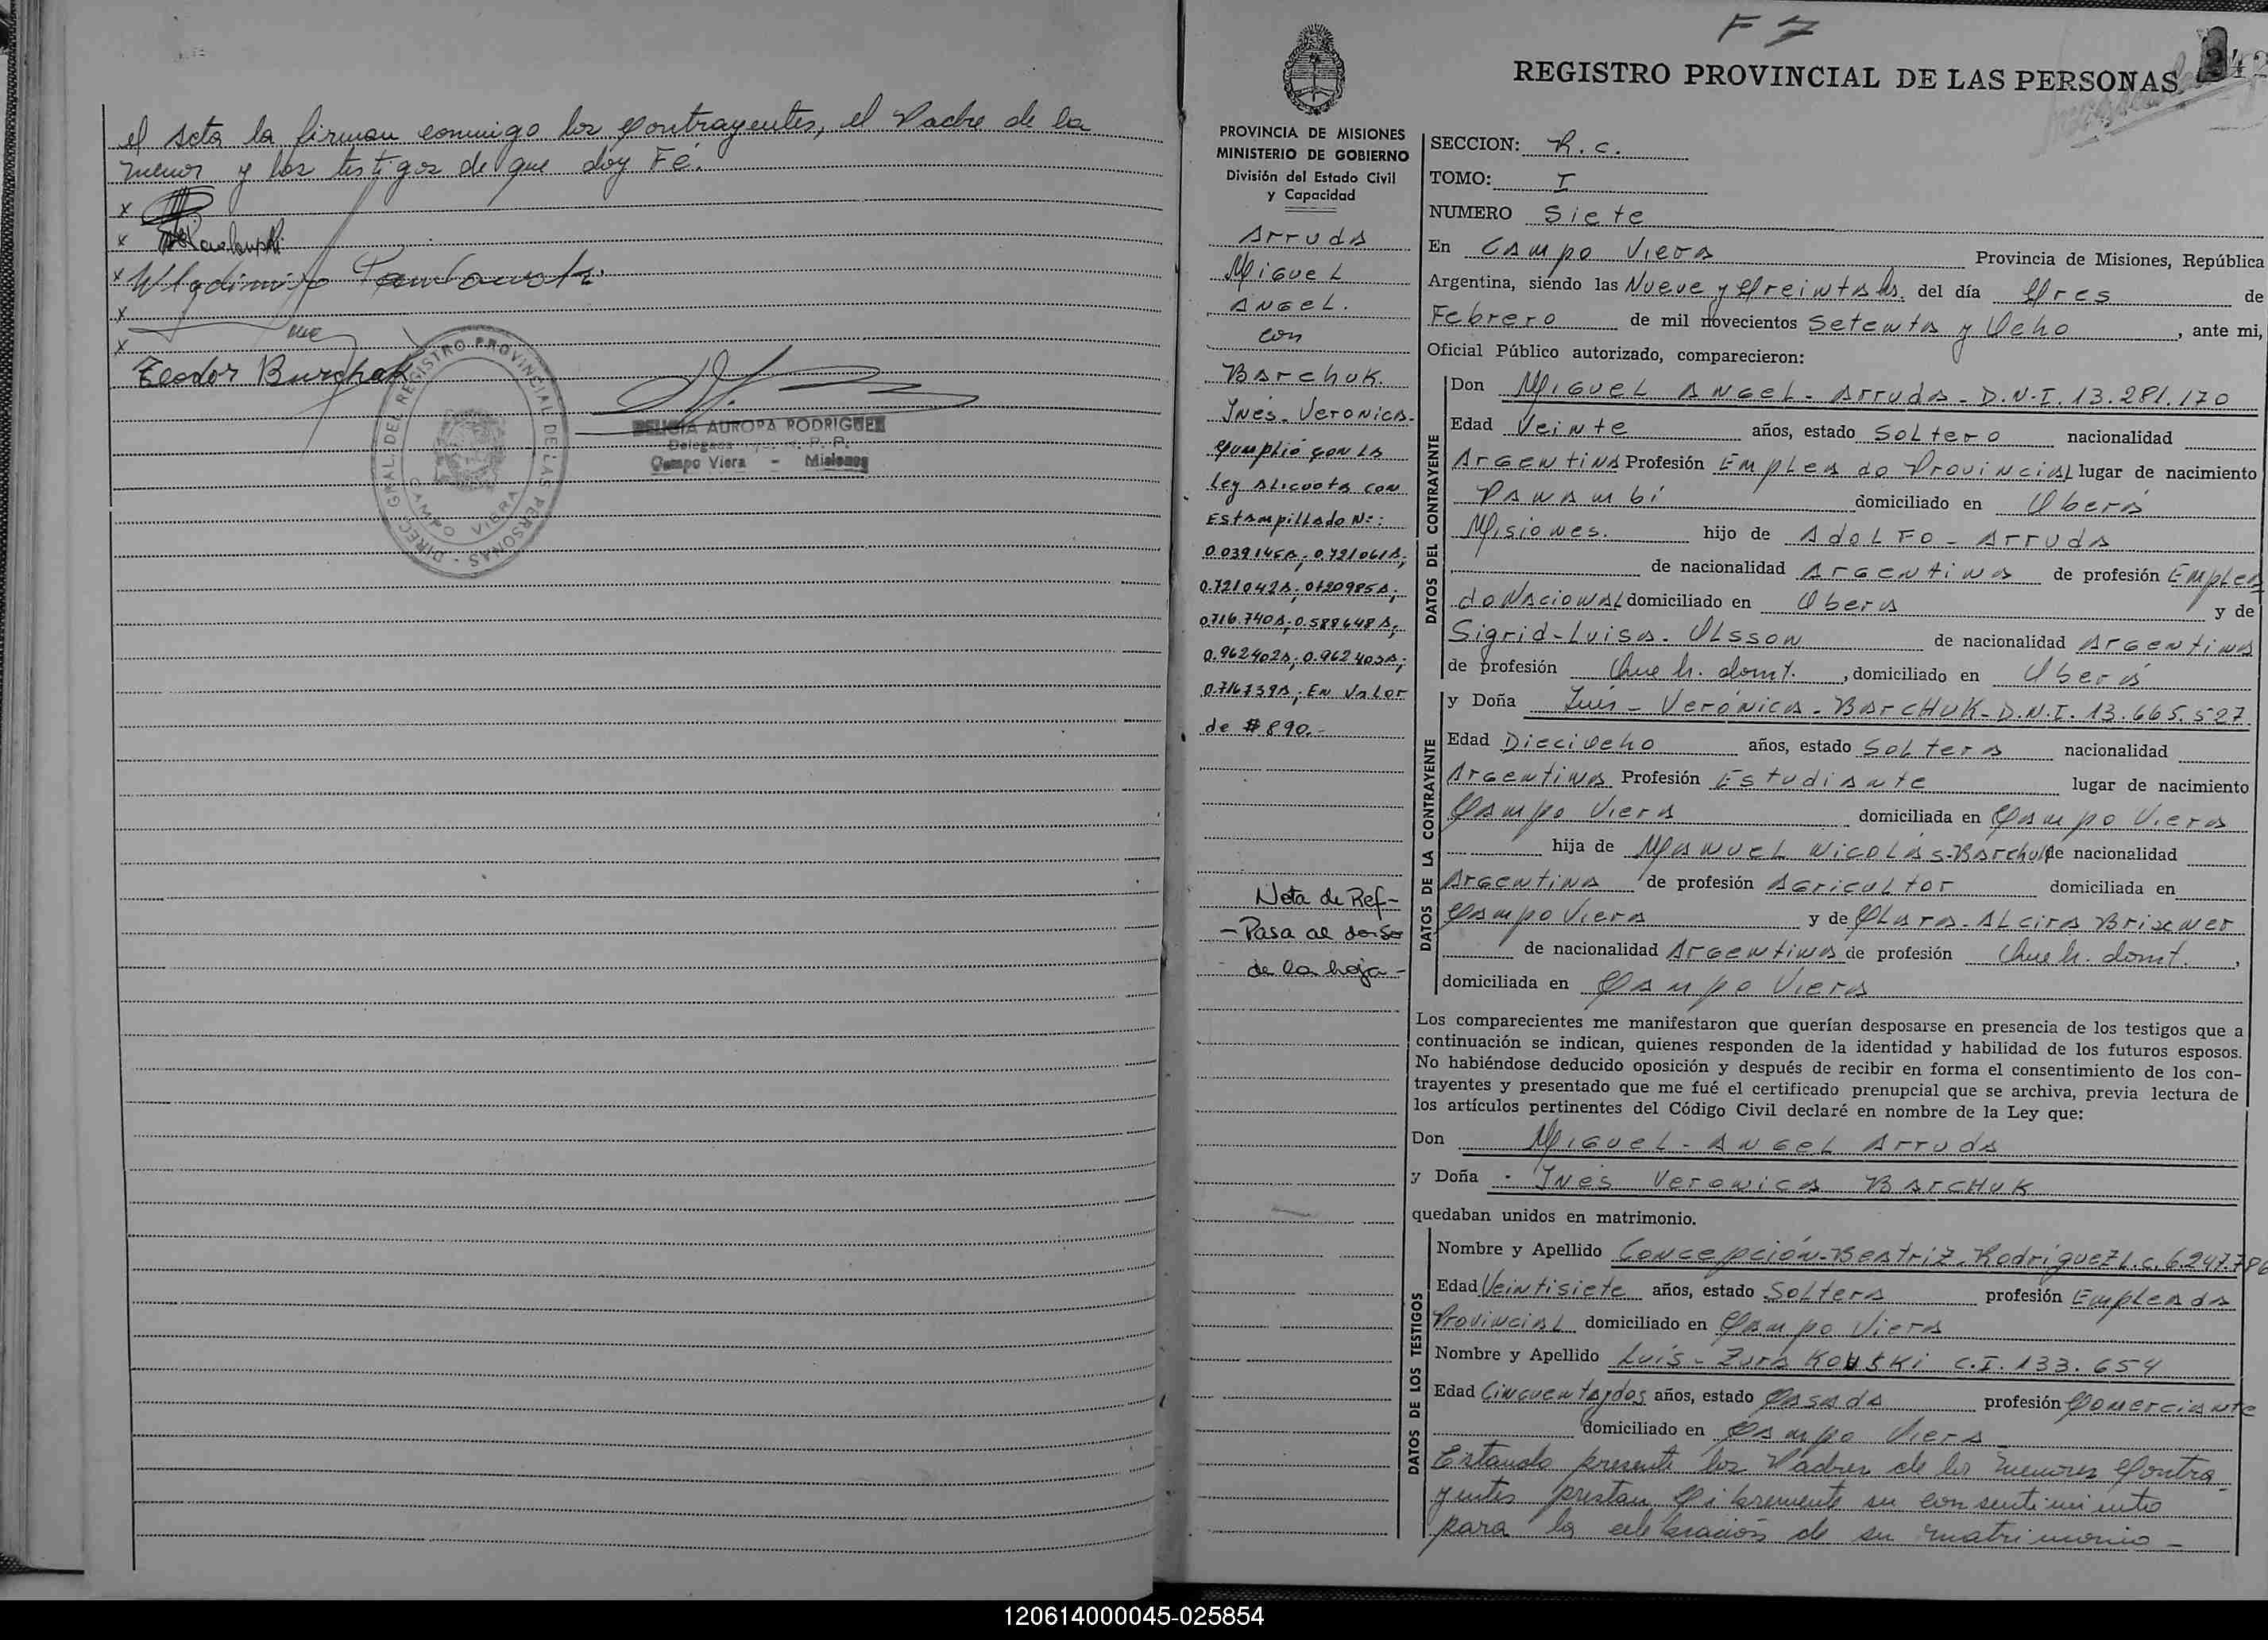 el Acta la firman conmigo los Contrayentes, el Padre de la
menor y los testigos de que doy Fé.
x
x
x Wladimiro
x
x
Teodor Burchak
DIREC. GRAL. DEL REGISTRO PROVINCIAL DE LAS PERSONAS -
CAMPO VIERA
DELICIA AURORA RODRIGUEZ
Campo Viera - Misiones
F 7
242
REGISTRO PROVINCIAL DE LAS PERSONAS
PROVINCIA DE MISIONES
MINISTERIO DE GOBIERNO
División del Estado Civil
y Capacidad
Arruda
Miguel
Angel.
con
Barchuk.
Inés - Veronica -
Cumplió con la
Ley Alicuota con
Estampillado Nº:
0.039145A; 0.721061A;
0.721042A; 0720985A;
0716.740A; 0.588648A;
0.962402A; 0.962403A;
0.716739A; En Valor
de $ 890.-
Nota de Ref-
- Pasa al dorso
de la hoja -
SECCION: R. c.
TOMO: I
NUMERO Siete
En Campo Viera Provincia de Misiones, República
Argentina, siendo las Nueve y Treinta hs. del día Tres de
Febrero de mil novecientos Setenta y Ocho, ante mi,
Oficial Público autorizado, comparecieron:
DATOS DEL CONTRAYENTE
Don Miguel Angel - Arruda - D.N.I. 13.281.170
Edad Veinte años, estado Soltero nacionalidad
Argentina Profesión Empleado Provincial lugar de nacimiento
Panambí domiciliado en Oberá
Misiones. hijo de Adolfo - Arruda
de nacionalidad Argentina de profesión Emplea
do Nacional domiciliado en Obera y de
Sigrid - Luisa - Olsson de nacionalidad Argentina
de profesión Queh. domt., domiciliado en Oberá
DATOS DE LA CONTRAYENTE
y Doña Inés - Verónica - BarCHUK - D.N.I. 13.665.527
Edad Dieciocho años, estado Soltera nacionalidad
Argentina Profesión Estudiante lugar de nacimiento
Campo Viera domiciliada en Campo Viera
hija de Manuel Nicolás - Barchuk de nacionalidad
Argentina de profesión Agricultor domiciliada en
Campo Viera y de Clara - Alcira Brixner
de nacionalidad Argentina de profesión Queh. domt.,
domiciliada en Campo Viera
Los comparecientes me manifestaron que querían desposarse en presencia de los testigos que a
continuación se indican, quienes responden de la identidad y habilidad de los futuros esposos.
No habiéndose deducido oposición y después de recibir en forma el consentimiento de los con-
trayentes y presentado que me fué el certificado prenupcial que se archiva, previa lectura de
los artículos pertinentes del Código Civil declaré en nombre de la Ley que:
Don Miguel - Angel Arruda
y Doña - Inés Veronica BarCHUK
quedaban unidos en matrimonio.
DATOS DE LOS TESTIGOS
Nombre y Apellido Concepción - Beatriz - Rodríguez L.C. 6.247.786
Edad Veintisiete años, estado Soltera profesión Empleada
Provincial domiciliado en Campo Viera
Nombre y Apellido Luis - Zurakouski C.I. 133.654
Edad Cincuentaydos años, estado Casado profesión Comerciante
domiciliado en Campo Viera
Estando presente los Padres de los menores Contra-
yentes prestan libremente su consentimiento
para la celebración de su matrimonio -
120614000045-025854